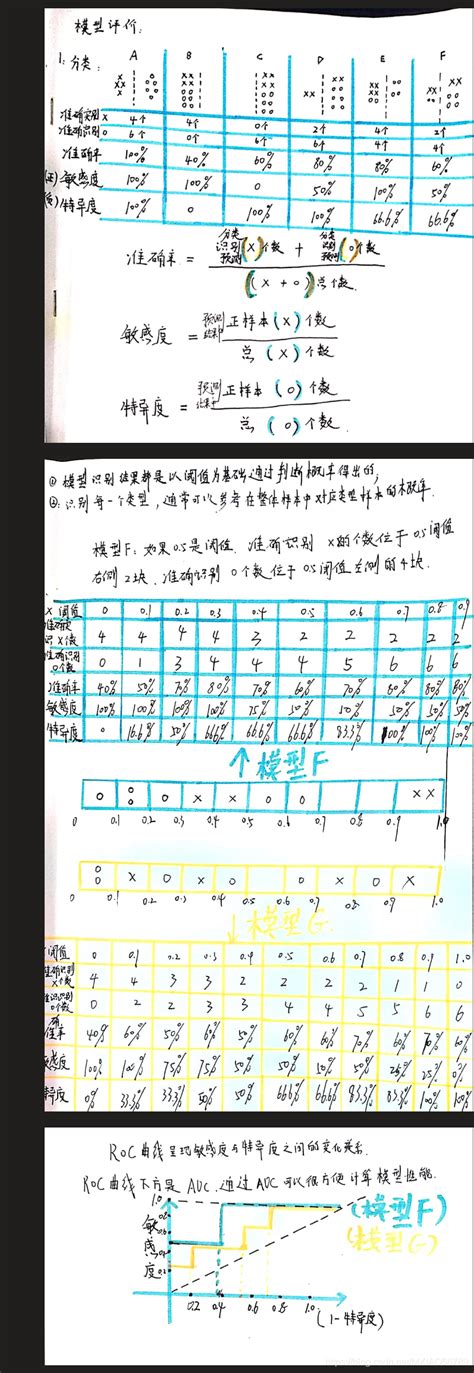 模型评价:
1: 分类: A B C D E F
准确识别 X 4个 4个 0个 2个 4个 2个
准确识别 0 6个 0个 6个 6个 4个 4个
准确率 100% 40% 60% 80% 80% 60%
(正) 敏感度 100% 100% 0 50% 100% 50%
(负) 特异度 100% 0 100% 100% 66.6% 66.6%
准确率 = 分类识别预测(X)个数 + 分类识别预测(0)个数
(X + 0)总个数.
敏感度 = 预测结果中 正样本(X)个数
总(X)个数
特异度 = 预测结果中 正样本(0)个数
总(0)个数.
① 模型识别结果都是以阈值为基础通过判断概率得出的,
②: 识别每一个类型, 通常可以参考在整体样本中对应类型样本的概率.
模型F: 如果0.5是阈值. 准确识别 X的个数位于0.5阈值
右侧2块. 准确识别0个数位于0.5阈值左侧的4块.
X 阈值 0 0.1 0.2 0.3 0.4 0.5 0.6 0.7 0.8 0.9
识X个数 4 4 4 4 3 2 2 2 2 2
准确识别0个数 0 1 3 4 4 4 5 6 6 6
准确率 40% 50% 70% 80% 70% 60% 70% 80% 80% 80%
敏感度 100% 100% 100% 100% 75% 50% 50% 50% 50% 50%
特异度 0 16.6% 50% 66.6% 66.6% 66.6% 83.3% 100% 100% 100%
↑ 模型F
0 0 0 0 X X 0 0 X X
0 0.1 0.2 0.3 0.4 0.5 0.6 0.7 0.8 0.9 1.0
0 0 X 0 X 0 0 X 0 X
0 0.1 0.2 0.3 0.4 0.5 0.6 0.7 0.8 0.9 1.0
↓ 模型G
阈值 0 0.1 0.2 0.3 0.4 0.5 0.6 0.7 0.8 0.9 1.0
准确识别X个数 4 4 3 3 2 2 2 2 1 1 0
准确识别0个数 0 2 2 3 3 4 4 5 5 6 6
准率 40% 60% 50% 60% 50% 60% 60% 70% 60% 70% 60%
敏感度 100% 100% 75% 75% 50% 50% 50% 50% 25% 25% 0%
特异度 0% 33.3% 33.3% 50% 50% 66.6% 66.6% 83.3% 83.3% 100% 100%
ROC曲线呈现敏感度与特异度之间的变化关系.
ROC曲线下方是AUC. 通过AUC可以很方便计算模型性能.
1.0
敏感度
(模型F)
(模型G)
0.2 0.4 0.6 0.8 1.0
(1-特异度)